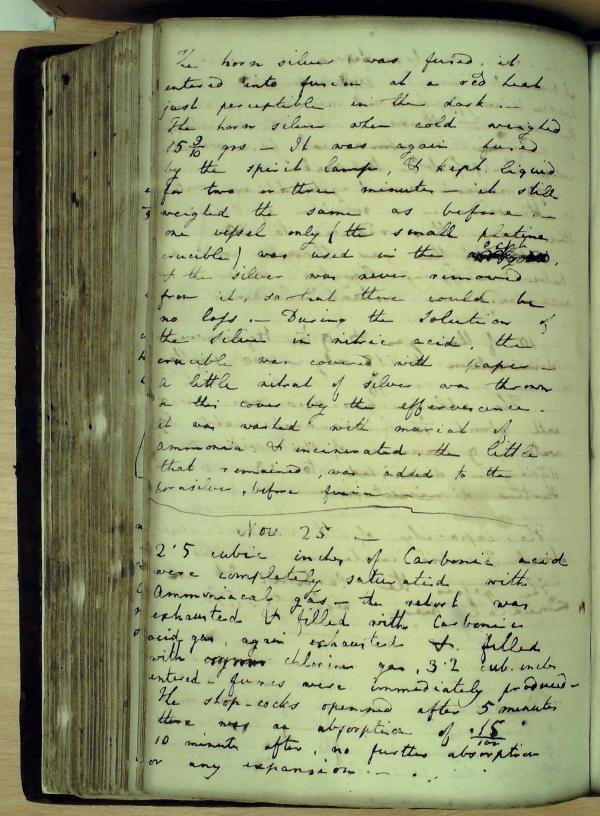 The horn silver was fused, it
entered into fusion at a red heat
just perceptible in the dark. —
The horn silver when cold weighed
15 9/10 grs — It was again fused
by the spirit lamp, & kept liquid
for two or three minutes — it still
weighed the same as before. —
one vessel only (the small platina
crucible) was used in the
& the silver was never removed
from it, so that there could be
no loss. — During the solution of
the silver in nitric acid, the
crucible was covered with paper —
a little nitrat of silver was thrown
on this cover by the effervescence.
it was washed with muriat of
ammonia & incinerated, the little
that remained, was added to the
hornsilver, before fusion
Nov. 25 —
2.5 cubic inches of Carbonic acid
were completely saturated with
Ammoniacal gas — the retort was
exhausted & filled with Carbonic
acid gas, again exhausted & filled
with chlorine gas, 3.2 cub. inches
entered — fumes were immediately produced —
The stop-cocks openned after 5 minutes
there was an absorption of .15/100
10 minutes after, no further absorption
or any expansion. —